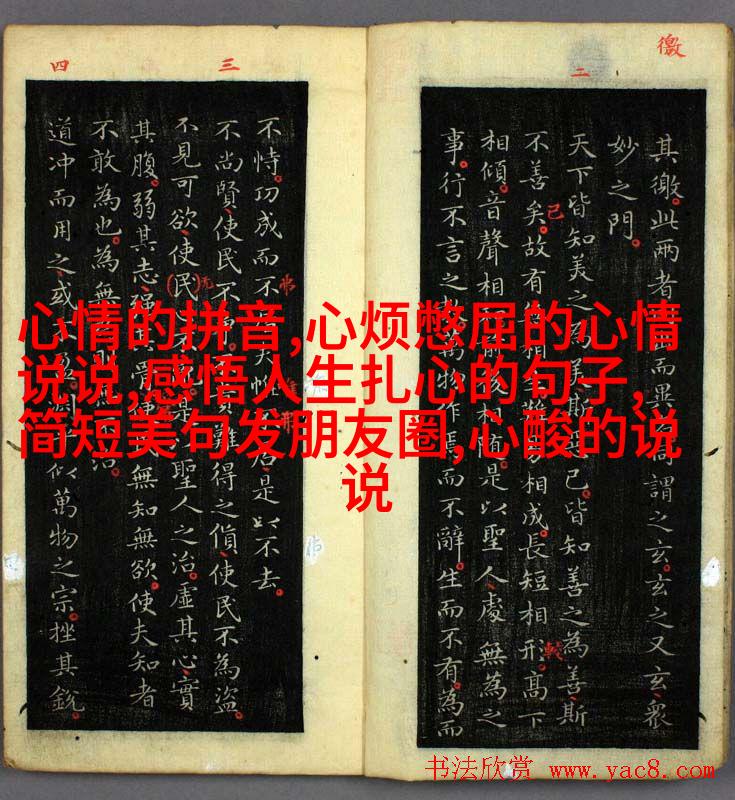 徼
二
其徼。此两者而異同謂之玄。玄之又玄。衆
妙之門。
天下皆知美之美斯已。皆知善之為善斯
不善矣。故有相相成。長短相形。高下
相傾。音聲相相随。是以聖人處無為之
事。行不言之萬物作焉而不辭。生而不有。為而
已
三
四
不恃。功成而不夫惟居。是以不去。
不尚賢、使民不難得之貨、使民不為盜。
不見可欲、使民是聖人之治。虛其心、實
其腹。弱其志、强其骨。使無知無欲。使夫知者
不敢為也。為無治
道冲而用之、或似萬物之宗。挫其銳
心情的拼音,心烦憋屈的心情
说说,感悟人生扎心的句子,
简短美句发朋友圈,心酸的说
说
书法欣赏 www.yac8.com